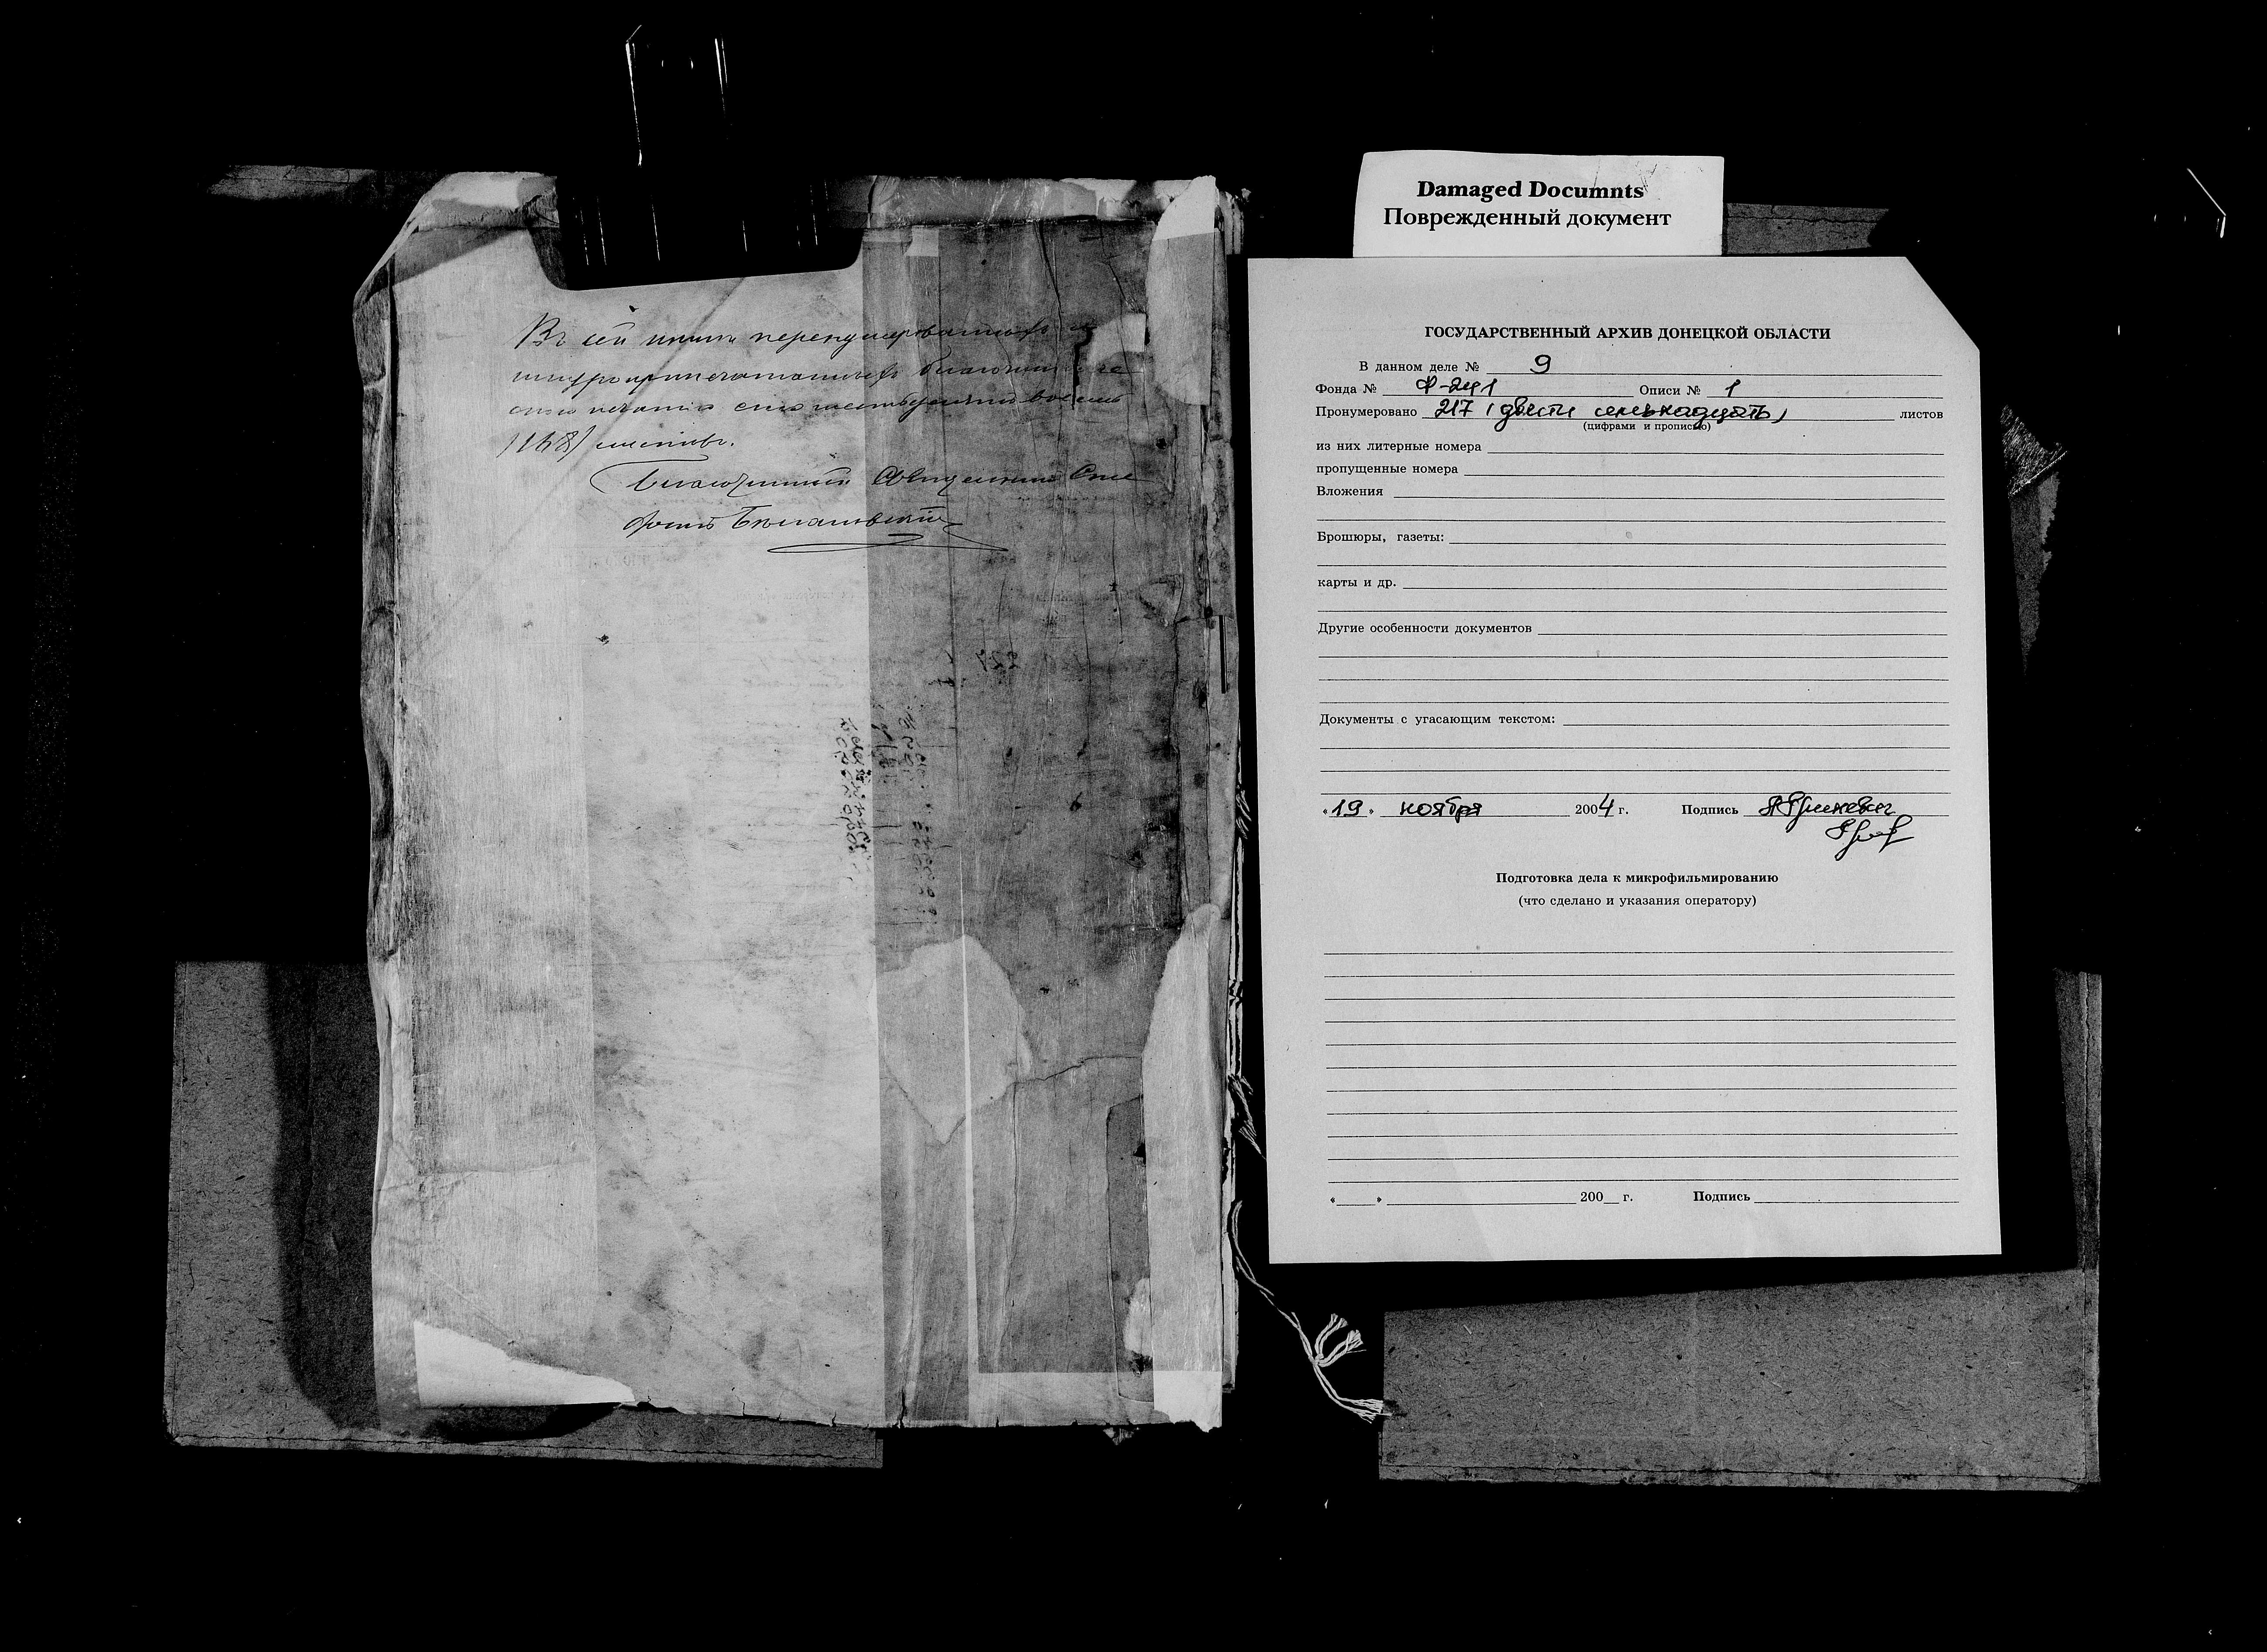 Въ сей книги перенумерованныхъ и
шнуроприпечатанныхъ благочинниче
скою печатью сто шестьдесятъ восемь
/168/ листовъ.
Благочинный Священникъ
Damaged Documnts
Поврежденный документ
ГОСУДАРСТВЕННЫЙ АРХИВ ДОНЕЦКОЙ ОБЛАСТИ
В данном деле № 9
Фонда № Ф-241 Описи № 1
Пронумеровано 217 (двести семьнадцать) листов
(цифрами и прописью)
из них литерные номера
пропущенные номера
Вложения
Брошюры, газеты:
карты и др.
Другие особенности документов
Документы с угасающим текстом:
« 19 » ноября 2004 г. Подпись
Подготовка дела к микрофильмированию
(что сделано и указания оператору)
« » 200 г. Подпись